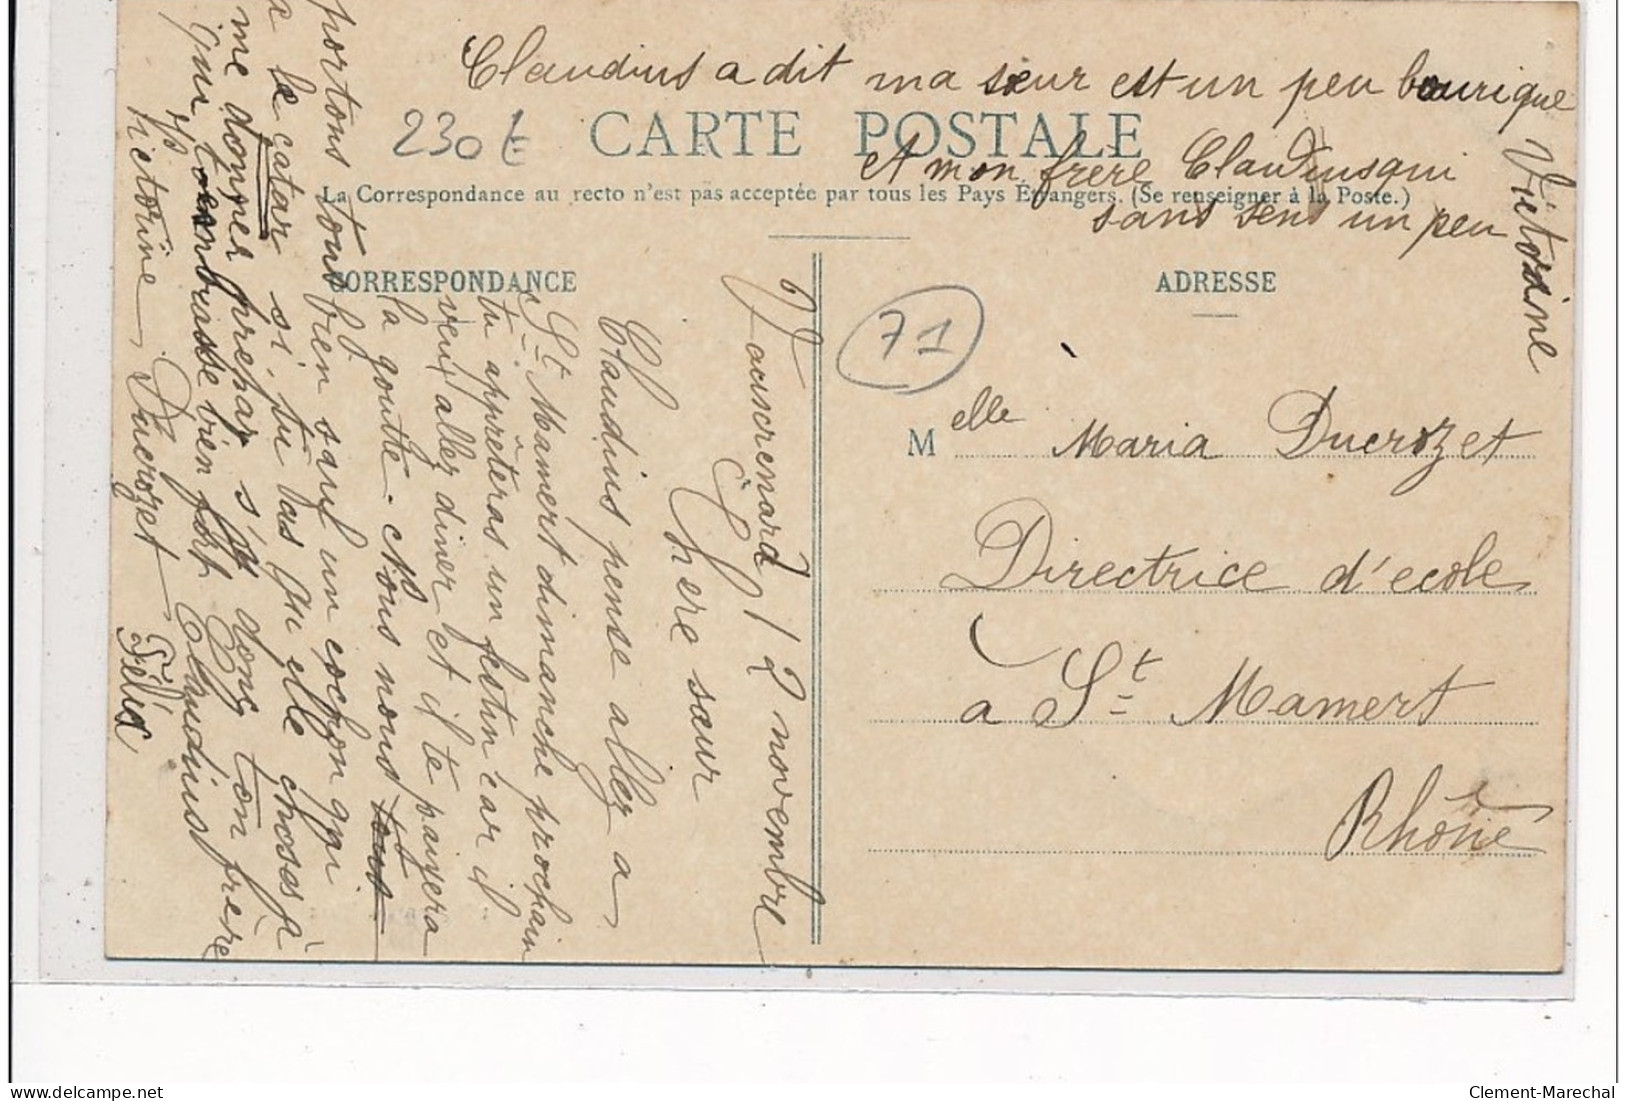 Claudius a dit ma sœur est un peu bourique
et mon frere Claudius qui
sans sent un peu
Victorine
230 E
CARTE POSTALE
La Correspondance au recto n'est pas acceptée par tous les Pays Étrangers. (Se renseigner à la Poste.)
CORRESPONDANCE
ADRESSE
71
Melle Maria Ducrozet
Directrice d'ecole
a St Mamert
Rhône
12 novembre
Chere sœur
Claudius pense allez a
St Mamert dimanche prochain
tu appréteras un festin car il
veux allez diner et il te paiyera
la goutte. Nous nous tous
portons tous bien sauf un cochon qui
a le catar si tu as qu elle choses à
me donner prepar s'y donc ton frère
qui t'embrasse bien fort Claudius
Victorine Ducrozet Félix
Clement-Marechal